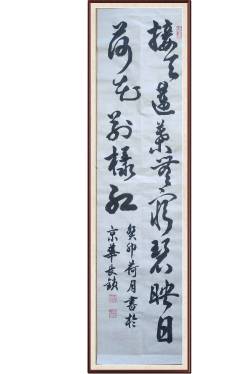 接天蓮葉無窮碧映日
荷花別樣紅
癸卯荷月書於
京華長鎮